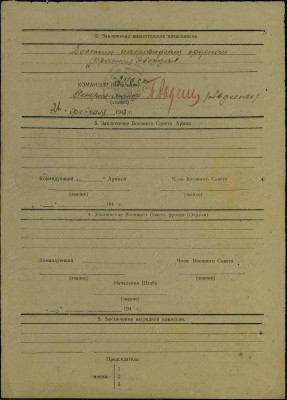 2. Заключение вышестоящих начальников
Достоин награждения орденом
"Красная Звезда"
КОМАНДИР (Начальник)
(звание)
февраля 194
3. Заключение Военного Совета Армии
Командующий Армией Член Военного Совета
(звание) (звание)
194 г.
4. Заключение Военного Совета фронта (Округа)
Командующий Член Военного Совета
(звание) (звание)
Начальник Штаба
(звание)
194 г.
5. Заключение наградной комиссии
Председатель
1
члены 2
3